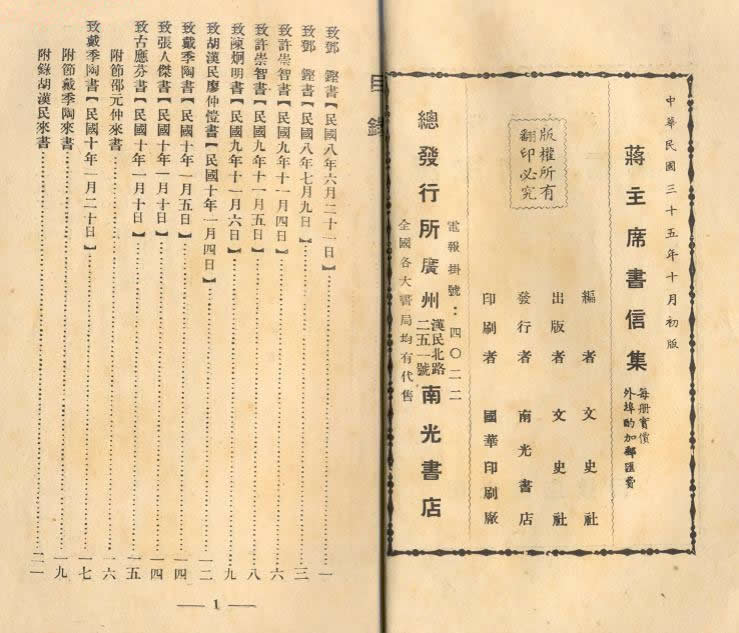 中華民國三十五年十月初版
蔣主席書信集
每冊實價
外埠酌加郵匯費
編者 文史社
出版者 文史社
發行者 南光書店
印刷者 國華印刷廠
版權所有
翻印必究
電報掛號：四〇二二
總發行所廣州漢民北路二五一號南光書店
全國各大書局均有代售
目錄
致鄧 鏗書【民國八年六月二十一日】……一
致鄧 鏗書【民國八年七月九日】……三
致許崇智書【民國九年十一月四日】……六
致許崇智書【民國九年十一月五日】……八
致陳炯明書【民國九年十一月六日】……九
致胡漢民廖仲愷書【民國十年一月四日】……一二
致戴季陶書【民國十年一月五日】……一四
致張人傑書【民國十年一月十日】……一四
致古應芬書【民國十年一月十日】……一五
附節邵元仲來書……一六
致戴季陶書【民國十年一月二十日】……一七
附節戴季陶來書……一九
附錄胡漢民來書……二一
— 1 —